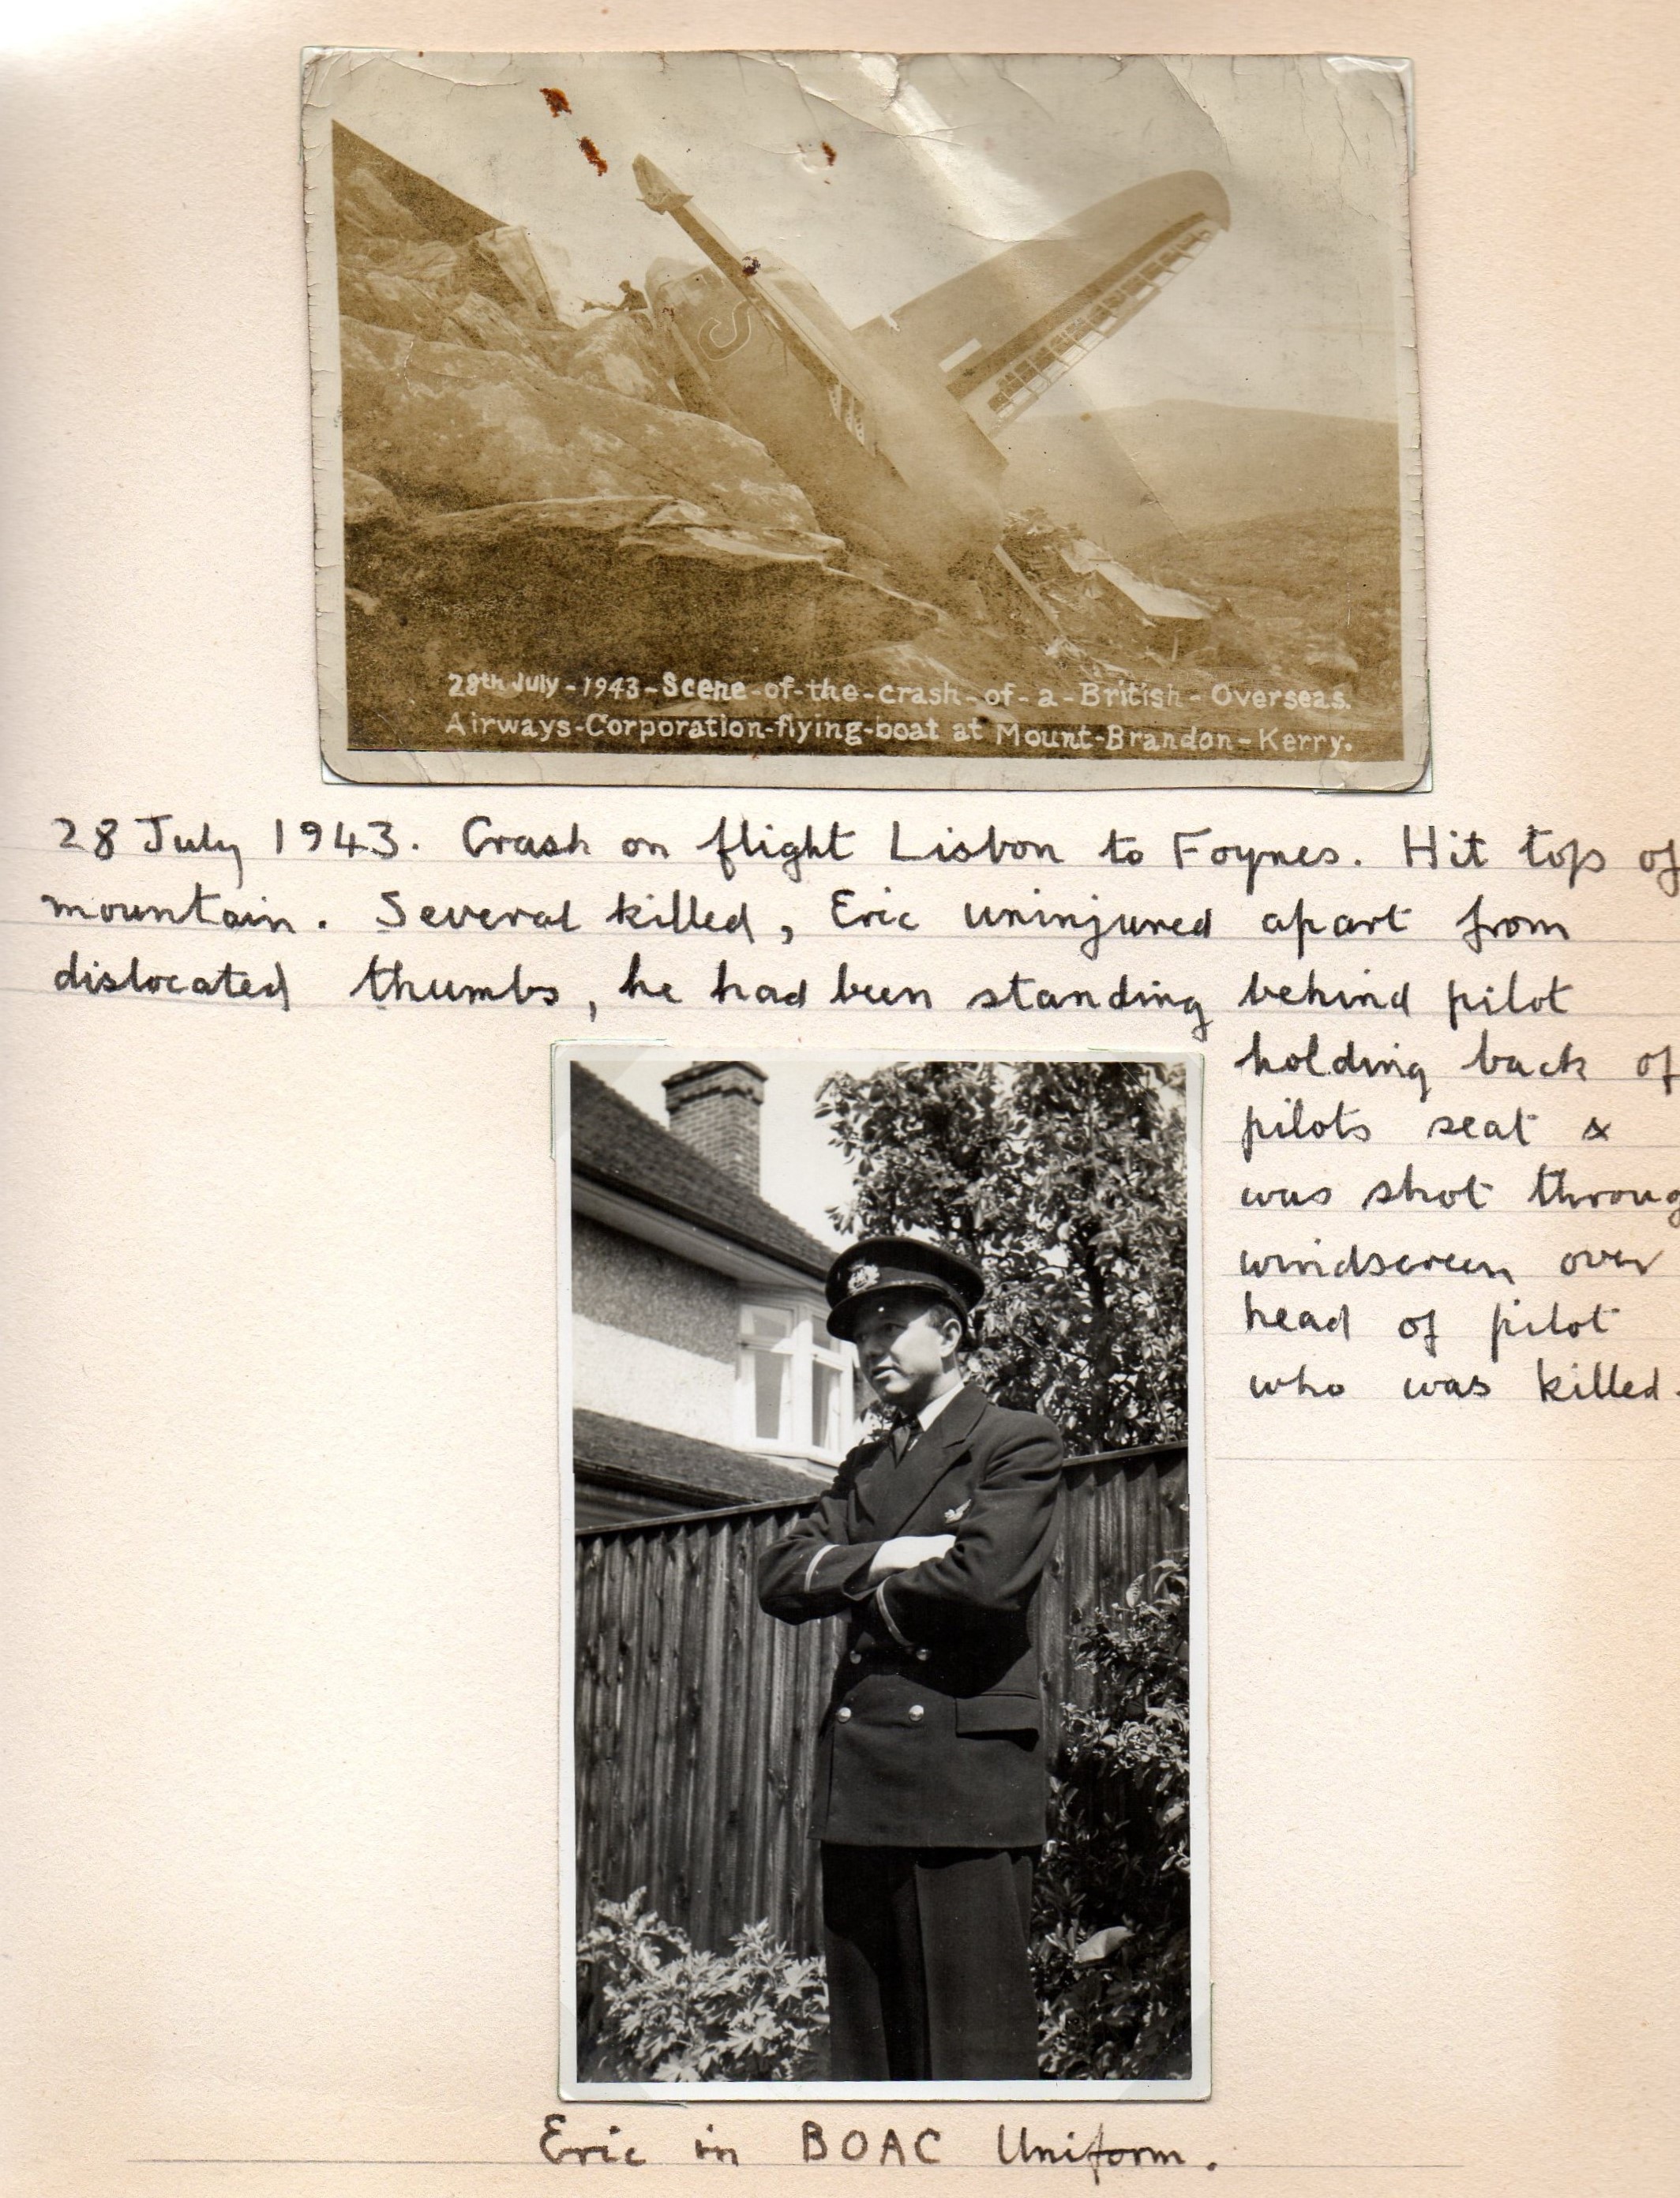 S
28th July-1943-Scene-of-the-crash-of-a-British-Overseas.
Airways-Corporation-flying-boat at Mount-Brandon-Kerry.
28 July 1943. Crash on flight Lisbon to Foynes. Hit top of
mountain. Several killed, Eric uninjured apart from
dislocated thumbs, he had been standing behind pilot
holding back of
pilots seat &
was shot throug
windscreen over
head of pilot
who was killed.
Eric in BOAC Uniform.